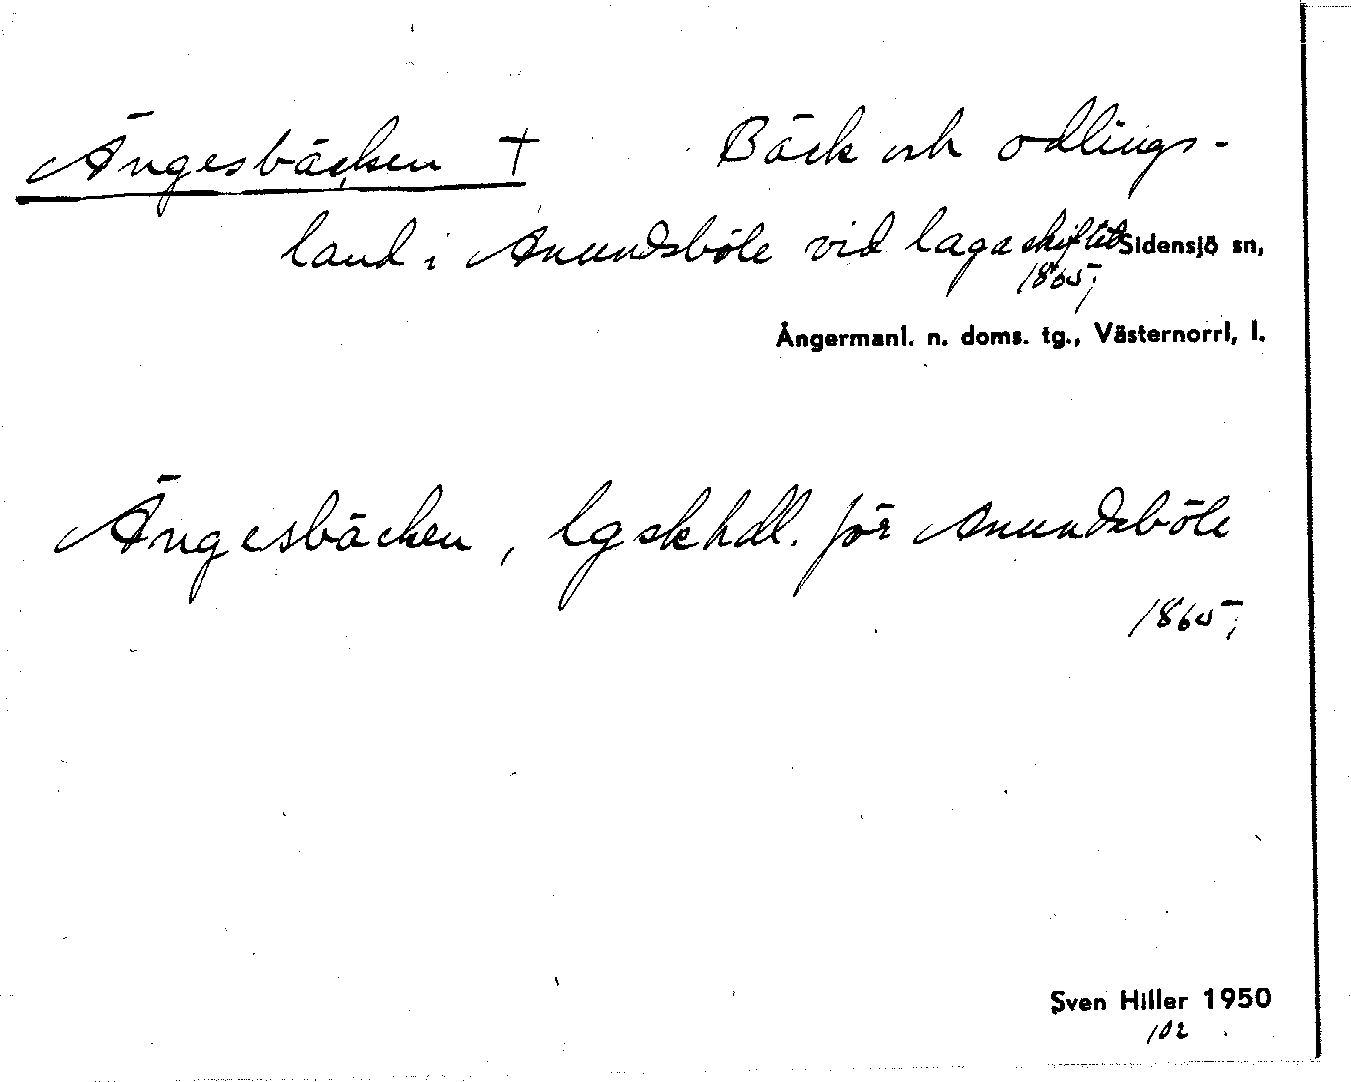 Ängesbäcken † Bäck och odlings-
land i Anundsböle vid laga skiftet Sidensjö sn,
1865,
Ångermanl. n. doms. tg., Västernorrl, l.
Ängesbäcken, lgskhdl. för Anundsböle
1865,
Sven Hiller 1950
102